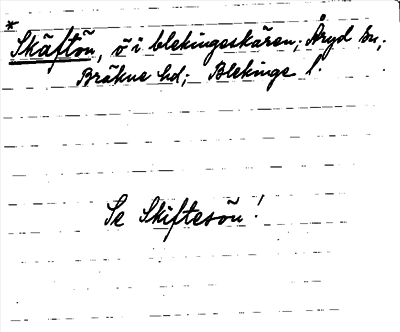 *
Skäftön, ö i blekingeskären; Åryd sn;
Bräkne hd; Blekinge l.
Se Skiftesön!